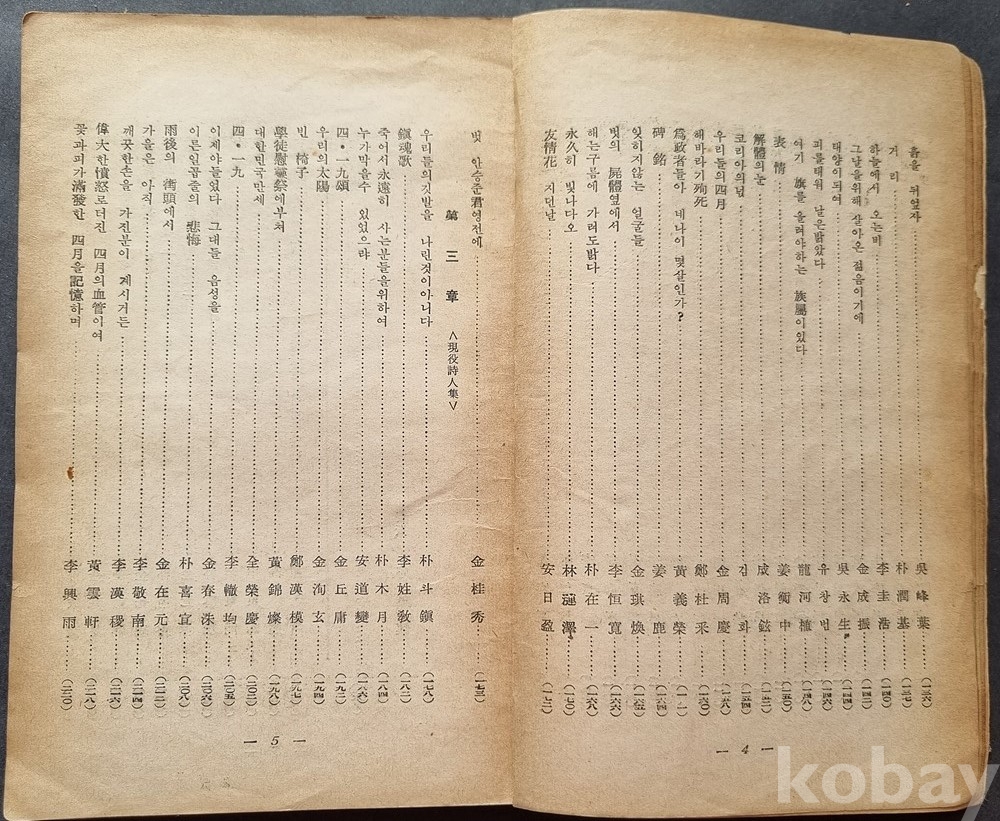 흙을 뒤엎자 吳峰葉 (一三六)
거리 朴潤基 (一三七)
하늘에서 오는비 李圭浩 (一四〇)
그날을위해 살아온 젊음이기에 金成振
태양이되여 吳永生 (一四四)
피를태워 날은밝았다 유상범 (一四六)
여기 旗를 올려야하는 族屬이있다 龍河植 (一四八)
表情 姜衡中 (一五〇)
解體의눈 成洛鉉 (一五二)
코리아의넋 김화 (一五四)
우리들의四月 金周慶
해바라기殉死 鄭杜采 (一六〇)
爲政者들아 네나이 몇살인가? 黃義榮
碑銘 姜鹿 (一六四)
잊히지않는 얼굴들 金琪煥 (一六五)
벗의 屍體옆에서 李恒寬 (一六六)
해는구름에 가려도밝다 朴在一 (一六八)
永久히 빛나다오 林蓮澤 (一七〇)
友情花 지던날 安日盈 (一七二)
— 4 —
벗 안승준君영전에 金桂秀 (一七三)
第三章 <現役詩人集>
우리들의깃발을 나린것이아니다 朴斗鎭 (一七八)
鎭魂歌 李姓敎 (一八二)
죽어서永遠히 사는분들을위하여 朴木月 (一八四)
누가막을수 있었으랴 安道燮
四·一九頌 金丘庸 (一九二)
우리의太陽 金洵玄 (一九四)
빈 椅子 鄭漢模 (一九七)
學徒慰靈祭에부쳐 黃錦燦 (一九八)
대한민국만세 全榮慶 (二〇二)
四·一九 李轍均 (二〇五)
이제야들었다 그대들 음성을 金春洙 (二〇六)
이른일곱줄의 悲悔 朴喜宣 (二〇八)
雨後의 街頭에서 金在元 (二一二)
가을은 아직 李敬南 (二一四)
깨끗한손을 가진분이 계시거든 李漢稷 (二一六)
偉大한憤怒로더진 四月의血管이여 黃雲軒 (二一八)
꽃과피가滿發한 四月을記憶하며 李興雨 (二二〇)
— 5 —
kobay